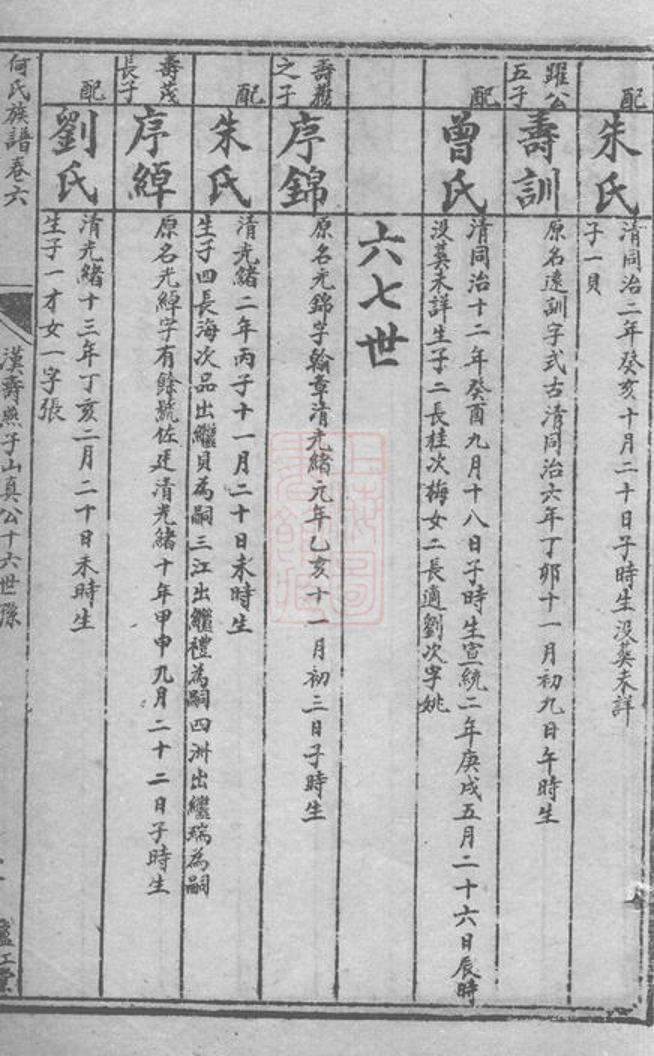 配
朱氏
清同治二年癸亥十月二十日子時生没葬未詳
子一貝
躍公
五子
壽訓
原名遠訓字式古清同治六年丁卯十一月初九日午時生
配
曾氏
清同治十二年癸酉九月十八日子時生宣統二年庚戌五月二十六日辰時
没葬未詳生子二長桂次梅女二長適劉次字姚
六七世
之子
序錦
原名元錦字翰章清光緒元年乙亥十一月初三日子時生
配
朱氏
清光緒二年丙子十一月二十日未時生
生子四長海次品出繼貝為嗣三江出繼禮為嗣四洲出繼瑞為嗣
壽茂
長子
序綽
原名光綽字有餘號佐廷清光緒十年甲申九月二十二日子時生
配
劉氏
清光緒十三年丁亥二月二十日未時生
生子一才女一字張
何氏族譜卷六
漢壽燕子山真公十六世孫
廬江堂